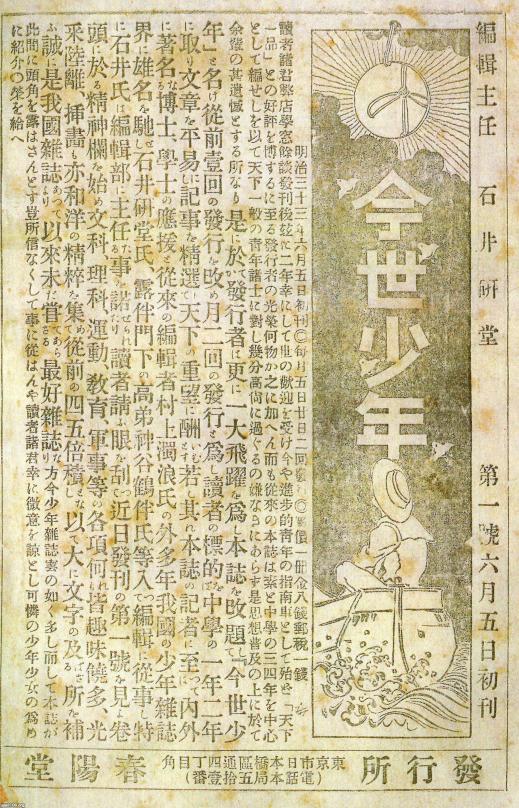 編輯主任 石井研堂 第一號六月五日初刊
今世少年
明治三十三年六月五日初刊〇每月五日廿日二回發行〇價一册金八錢郵稅一錢
讀者諸君弊店學窓餘談發刊後玆に二年幸にして世の歡迎を受け今や進步的靑年の指南車として殆ど「天下
一品」との好評を博するに至る發行者の光榮何物か之に加へん而も從來の本誌は案と中學の三四年を中心
として編せしを以て天下一般の靑年諸士に對し幾分高尙に過ぐるの嫌なきにあらず是思想普及の上に於て
余輩の甚遺憾とする所なり是に於か發行者は更に一大飛躍を爲し本誌を改題して「今世少
年」と名け從前壹回の發行を改め月二回の發行と爲し讀者の標的を中學の一年二年
に取り文章を平易に記事を精選し天下の重望に酬いんとす若し其れ本誌の記者に至つては內外
に著名なる博士、學士の應援と從來の編輯者村上濁浪氏の外多年我國の少年雜誌
界に雄名を馳せし石井研堂氏、露伴門下の高弟神谷鶴伴氏等入つて編輯に從事し特
に石井氏は編輯部に主任たる事を諾せられたり讀者請ふ眼を刮つて近日發刊の第一號を見よ卷
頭に於る精神欄を始め文科、理科、運動、敎育、軍事等の各項何れも皆趣味饒多、光
釆陸離、挿畵も亦和洋の精粹を集め從前の四五倍積となし以て大に文字の及ばざる所を補
ふ誠に是我國雜誌あつてより以來未だ嘗てあらざる最好雜誌なり方今少年雜誌雲の如く多し而して本誌が
此間に頭角を露はさんとす豈所信なくして事に從はんや讀者諸君幸に微意を諒とし可憐の少年少女の爲め
に紹介の榮を給へ
發行所
東京市日本橋區通四丁目角
電話本局五拾壹番
春陽堂